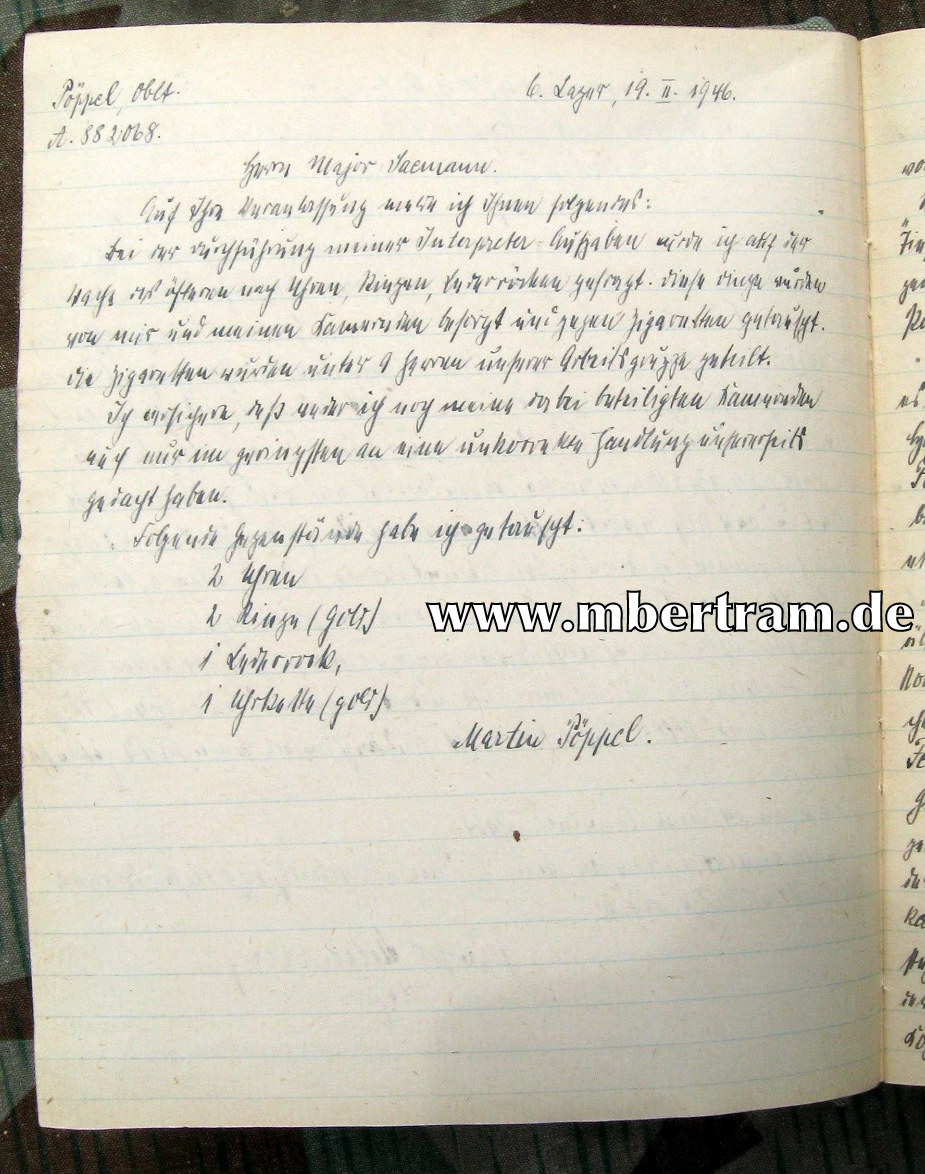 Pöppel, Oblt.
6. Lager, 19. II. 1946.
A. 882068.
Herrn Major Saemann.
Auf Ihre Veranlassung melde ich Ihnen folgendes:
Bei der Durchführung meiner Interpreter-Aufgaben wurde ich auf der
Wache des öfteren nach Uhren, Ringen, Lederröcken gefragt. Diese Dinge wurden
von mir und meinen Kameraden besorgt und gegen Zigaretten getauscht.
Die Zigaretten wurden unter 9 Herren unserer Arbeitsgruppe geteilt.
Ich versichere, daß weder ich noch meine dabei beteiligten Kameraden
auch nur im geringsten an eine unkorrekte Handlung unsererseits
gedacht haben.
Folgende Gegenstände habe ich getauscht:
2 Uhren
2 Ringe (Gold)
1 Lederrock,
1 Uhrkette (gold)
Martin Pöppel.
www.mbertram.de